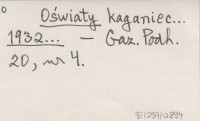 Oświaty kaganiec...
1932... — Gaz. Podh.
20, nr 4.